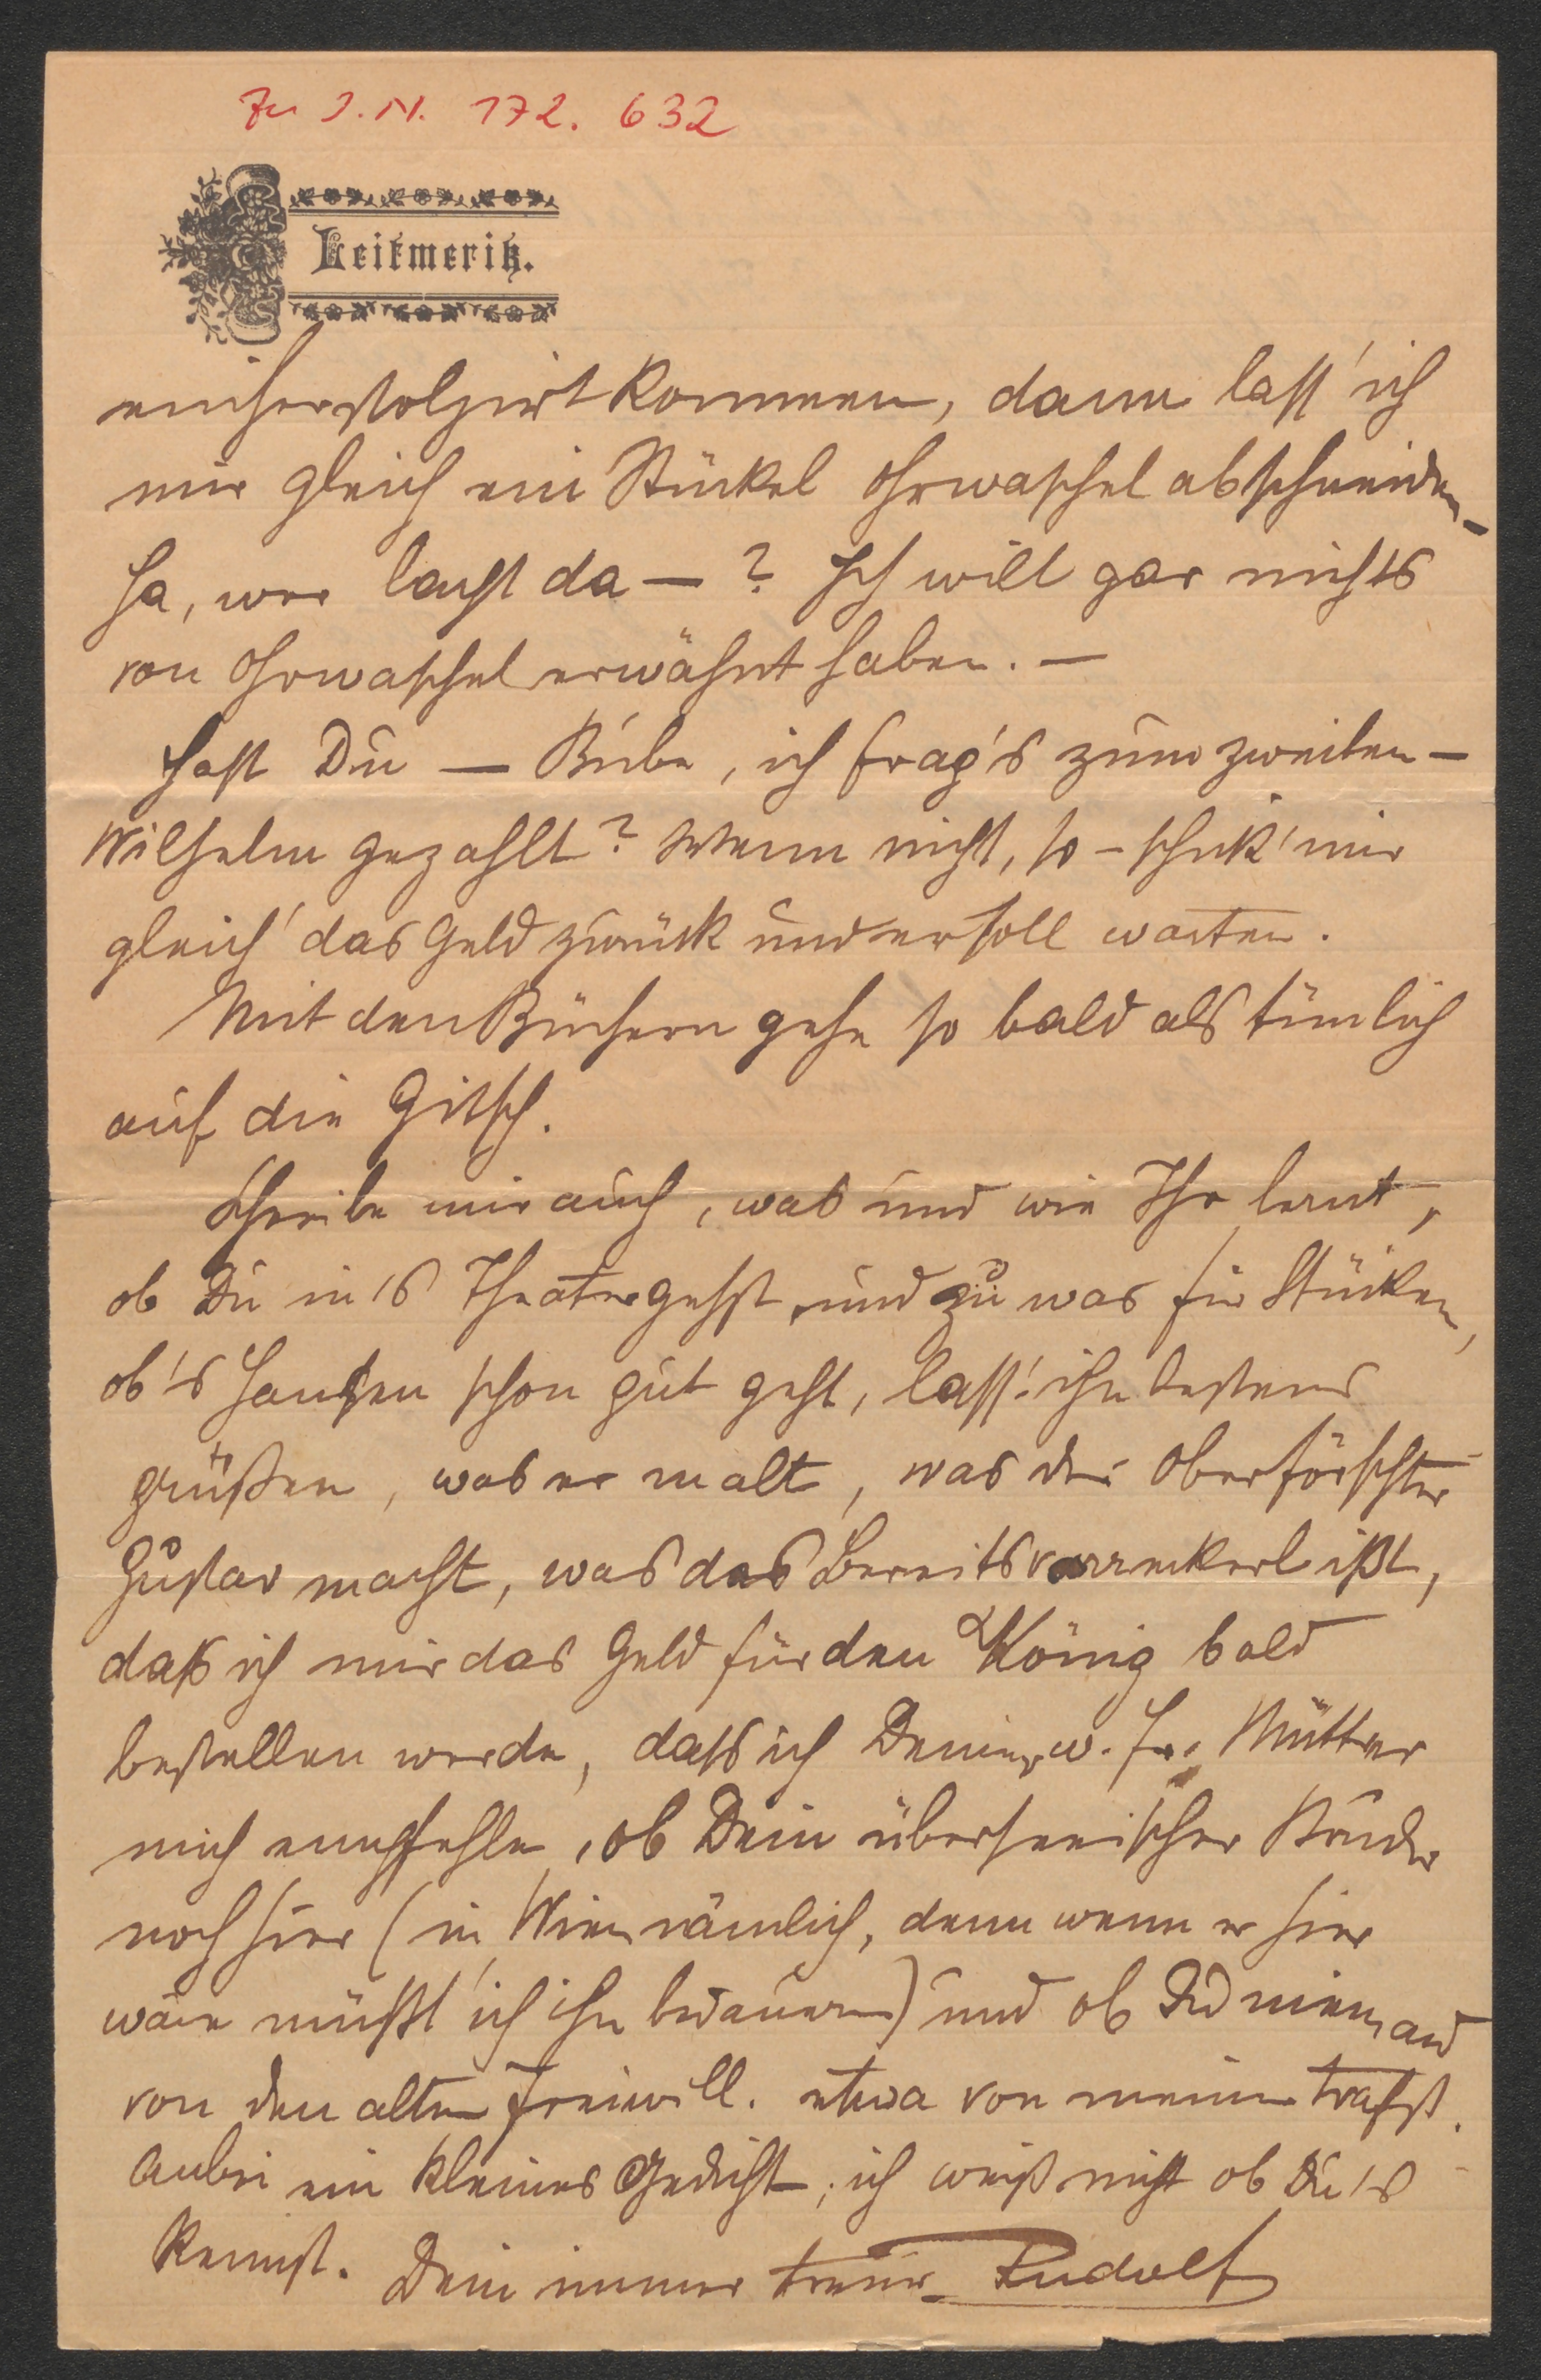 Zu I.N. 172.632
Leitmeritz.
einherstolzirt kommen, dann lass' ich
mir gleich ein Stückel Ohrwaschel abschneiden –
Ha, wer lacht da – ? Ich will gar nichts
von Ohrwaschel erwähnt haben. –
Hast Du – Bube, ich frag's zum zweiten –
Wilhelm gezahlt? Wenn nicht, so – schick' mir
gleich das Geld zurück und er soll warten.
Mit den Büchern gehe so bald als tunlich
auf die Gitsch.
Schreibe mir auch, was und wie Ihr lernt,
ob Du in's Theater gehst und zu was für Stücken,
ob's Hansen schon gut geht, lass' ihn bestens
grüßen, was er malt, was der Oberförschter
Gustav macht, was das ißt,
daß ich mir das Geld für den König bald
bestellen werde, daß ich Deiner w. Fr. Mutter
mich empfehle, ob Dein überseeischer Bruder
noch hier (in Wien nämlich, denn wenn er hier
wäre müßt' ich ihn bedauern) und ob Du niemand
von den alten Freiwill. etwa von meinen trafst.
Anbei ein kleines Gedicht; ich weiß nicht ob Du's
kennst. Dein immer treuer Rudolf